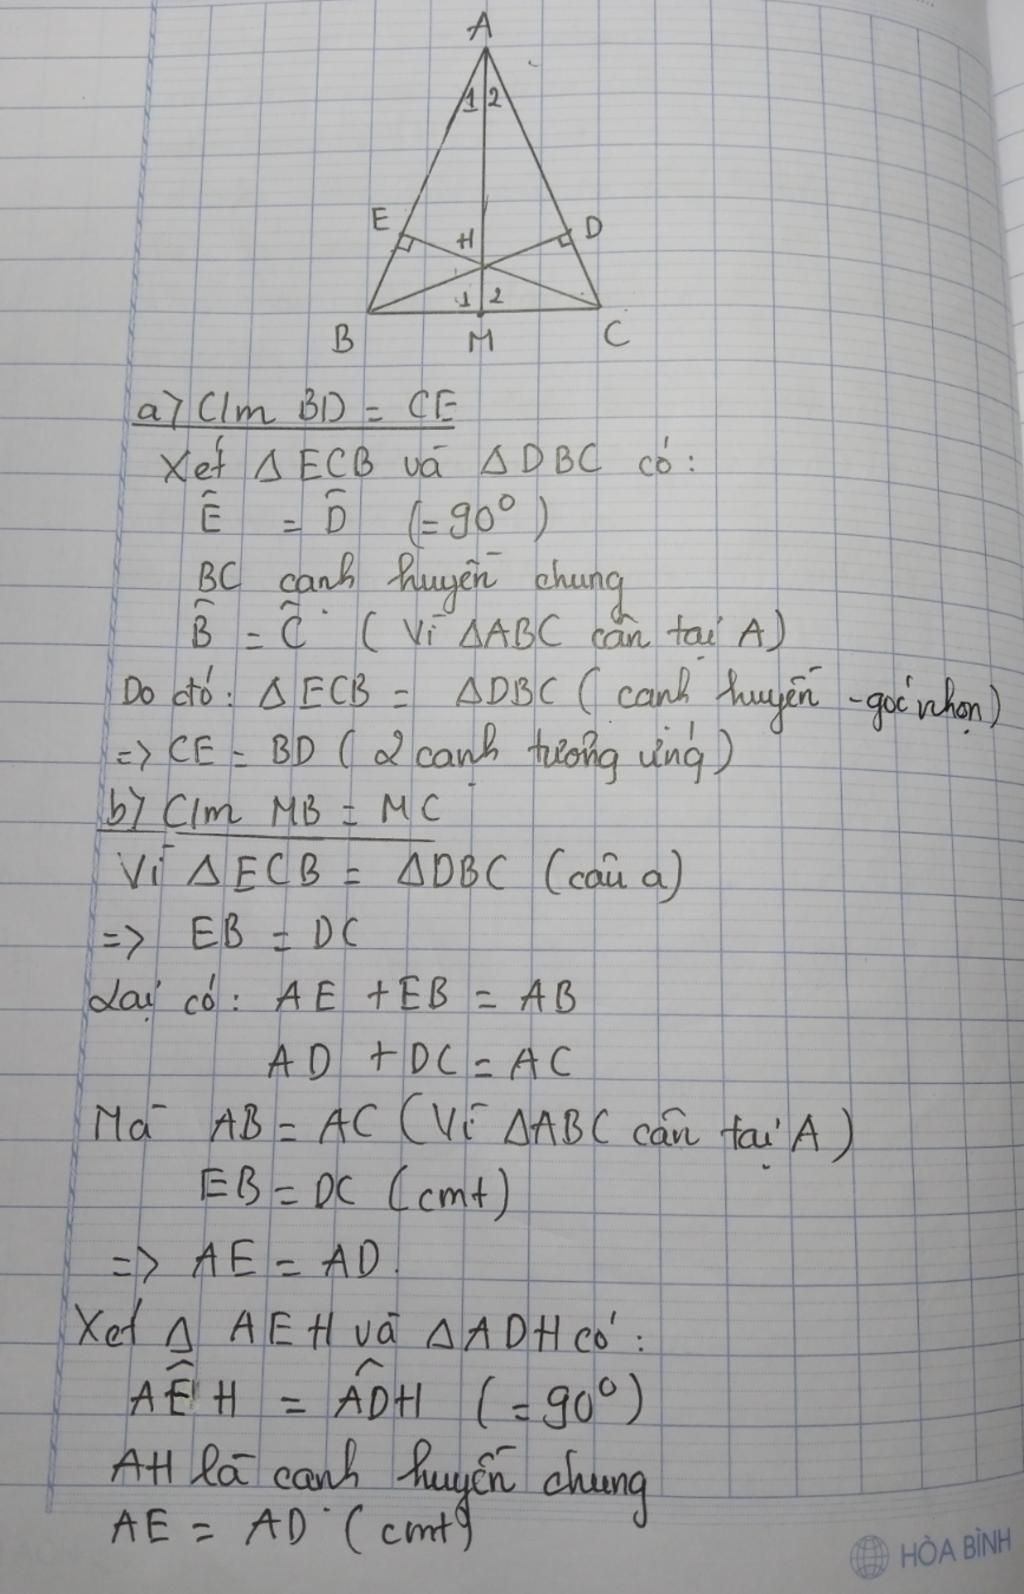 A
1 2
E
H
D
1 2
B
M
C
a) C/m BD = CE
Xét Δ ECB và Δ DBC có:
Ê = D̂ (= 90°)
BC cạnh huyền chung
B̂ = Ĉ (Vì ΔABC cân tại A)
Do đó: Δ ECB = ΔDBC (cạnh huyền - góc nhọn)
=> CE = BD (2 cạnh tương ứng)
b) C/m MB = MC
Vì Δ ECB = ΔDBC (câu a)
=> EB = DC
Lại có: AE + EB = AB
AD + DC = AC
Mà AB = AC (Vì ΔABC cân tại A)
EB = DC (cmt)
=> AE = AD.
Xét Δ AEH và ΔADH có:
AÊH = AD̂H (= 90°)
AH là cạnh huyền chung
AE = AD (cmt)
HÒA BÌNH